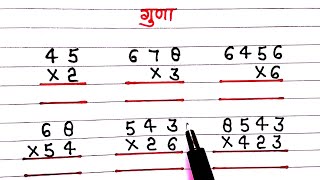 गुणा
45 678 6456
×2 ×3 ×6
68 543 8543
×54 ×26 ×423